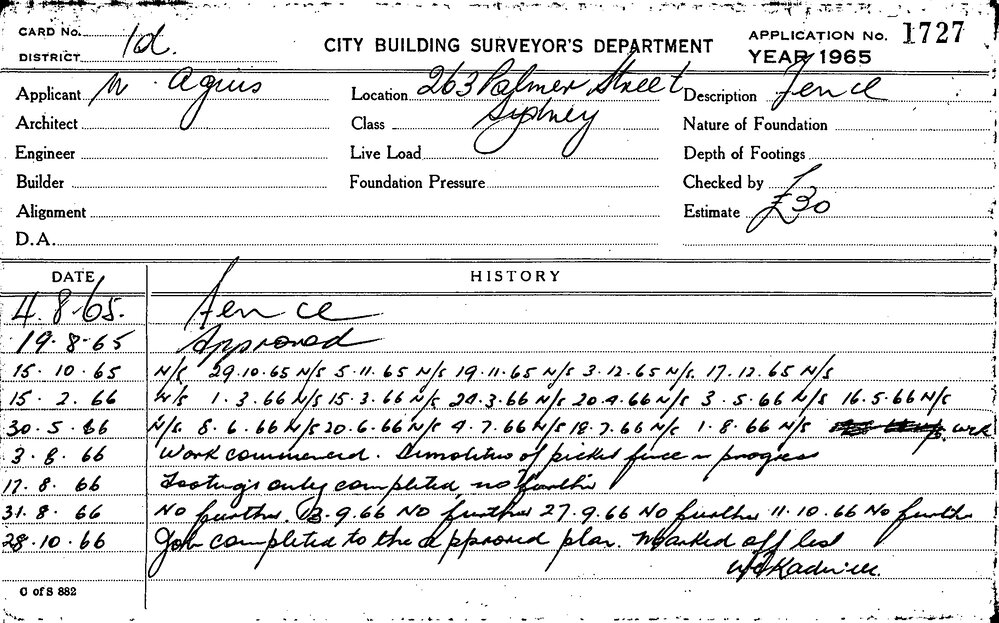 CARD No. 1d. CITY BUILDING SURVEYOR'S DEPARTMENT APPLICATION No. 1727
DISTRICT YEAR 1965
Applicant N. Agius Location 263 Palmer Street Description Fence
Sydney
Architect Class Nature of Foundation
Engineer Live Load Depth of Footings
Builder Foundation Pressure Checked by
Alignment Estimate £30
D.A.
DATE HISTORY
4.8.65. Fence
19.8.65 Approved
15.10.65 N/S 29.10.65 N/S 5.11.65 N/S 19.11.65 N/S 3.12.65 N/S. 17.12.65 N/S
15.2.66 N/S 1.3.66 N/S 15.3.66 N/S 24.3.66 N/S 20.4.66 N/S 3.5.66 N/S 16.5.66 N/S
30.5.66 N/S. 8.6.66 N/S 20.6.66 N/S 4.7.66 N/S 18.7.66 N/S 1.8.66 N/S
3.8.66 Work commenced. Demolition of picket fence in progress
17.8.66 Footings only completed, no further
31.8.66 No further. 13.9.66 No further 27.9.66 No further 11.10.66 No further
28.10.66 Job completed to the approved plan. Marked off list
C of S 882